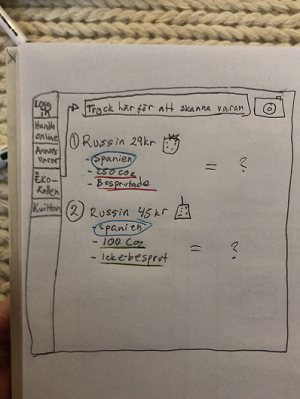 Logg
in
Handla
online
Annan
varor
EKO-
Rollen
Kvitton
Tryck här för att skanna varan
① Russin 29kr
- Spanien
- 250 CO2
- Besprutade
= ?
② Russin 45kr
- Spanien
- 100 CO2
- Icke-besprut
= ?